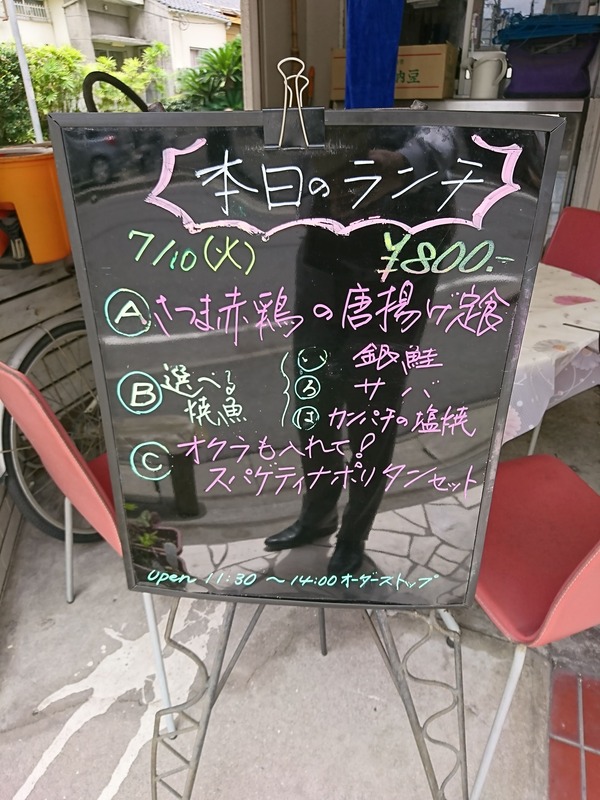 本日のランチ
7/10(火) ¥800.-
Ⓐさつま赤鶏の唐揚げ定食
Ⓑ選べる焼魚
い 銀鮭
ろ サバ
は カンパチの塩焼
Ⓒオクラも入れて!
スパゲティナポリタンセット
Open 11:30 〜 14:00オーダーストップ